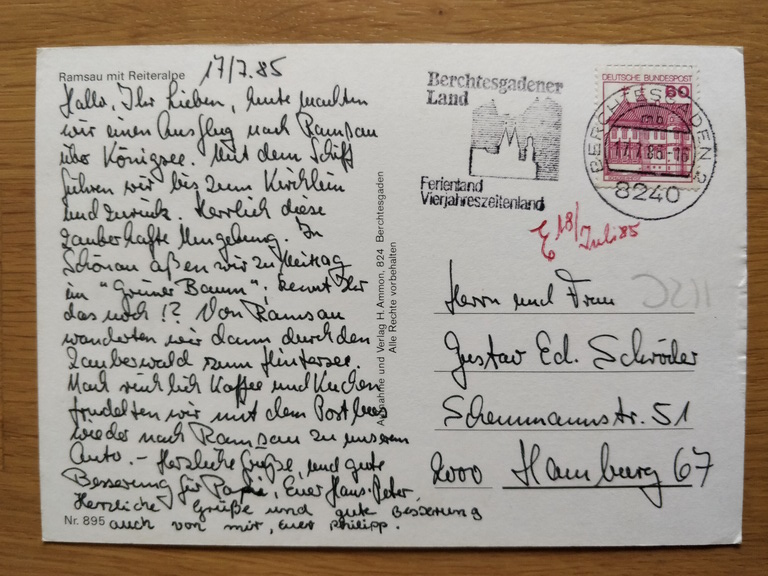 Ramsau mit Reiteralpe
17/7.85
Hallo, Ihr Lieben, heute machten
wir einen Ausflug nach Ramsau
über Königsee. Mit dem Schiff
fuhren wir bis zum Kirchlein
und zurück. Herrlich diese
zauberhafte Umgebung. In
Schönau aßen wir zu Mittag
im "Grüner Baum"; kennt Ihr
das noch!? Von Ramsau
wanderten wir dann durch den
Zauberwald zum Hintersee.
Nach reichlich Kaffee und Kuchen
trudelten wir mit dem Postbus
wieder nach Ramsau zu unserem
Auto. - Herzliche Grüße, und gute
Besserung für Papi, Euer Hans-Peter.
Herzliche Grüße und gute Besserung
auch von mir, euer Philipp.
Nr. 895
Aufnahme und Verlag H. Ammon, 824 Berchtesgaden
Alle Rechte vorbehalten
Berchtesgadener
Land
Ferienland
Vierjahreszeitenland
DEUTSCHE BUNDESPOST
60
BERCHTESGADEN 2
17.7.85-16
8240
E 18/Juli 85
Herrn und Frau
Gustav Ed. Schröder
Schemmannstr. 51
2000 Hamburg 67